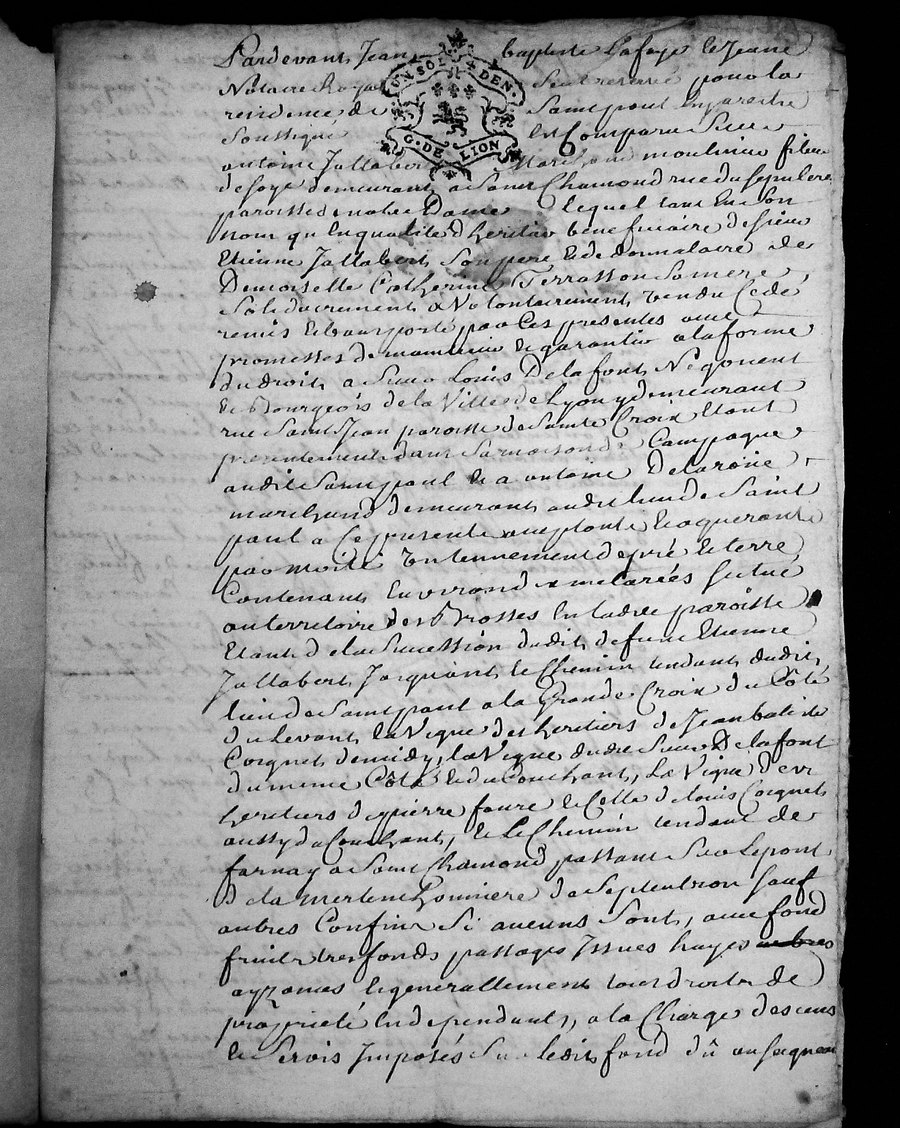 Pardevant Jean baptiste Lafaye le Jeune
UN SOL 4 DEN.
Notaire Royal pour la
residence de Saint paul En Jarestre
Soussigné Est Comparu Sieur
G. DE LION
antoine Jallabert Marchand moulinier fileur
de soye demeurant a Saint Chamond rue du sepulcre
paroisse de notre Dame lequel tant En Son
nom qu'En qualité d'heritier beneficiaire de sieur
Etienne Jallabert Son pere Et de de
Demoiselle Catherine Terrasson Sa mere,
Solidairement a Volontairement Vendu Cedé
remis Et transporté par Ces presentes avec
promesses de maintenir Et garantir a la forme
du droit, a Sieur Louis Delafont Negociant
Et Bourgeois de la Ville de Lyon y demeurant
rue Saint Jean paroisse de Sainte Croix Etant
presentement dans Sa maison de Campagne
audit Saint paul Et a antoine Delaroire
marchand demeurant audit lieu de Saint
paul a Ce present acceptants Et aquerants
par moitié Un tennement de pré Et terre
Contenant Environ metarées situé
au territoire des Brosses En ladite paroisse
Etant de la Succession dudit defunt Etienne
Jallabert, Joignant le Chemin tendant dudit
lieu de Saint paul a la Grande Croix du Côté
du levant, la Vigne des heritiers de Jean batiste
Coignet de midy, la Vigne dudit Sieur Delafont
du meme Côté Et du Couchant, La Vigne des
heritiers de pierre faure Et Celle de louis Coignet
aussy du Couchant, Et le Chemin tendant de
farnay a Saint Chamond passant Sur le pont
de la de Septentrion sauf
autres Confins Si aucuns Sont, avec fond
fruits tresfonds passages Issues hayes arbres
ayzances Et generallement tous droits de
proprieté En dependants, a la Charge des cens
Et Servis Imposés Sur ledit fond dû au seigneur